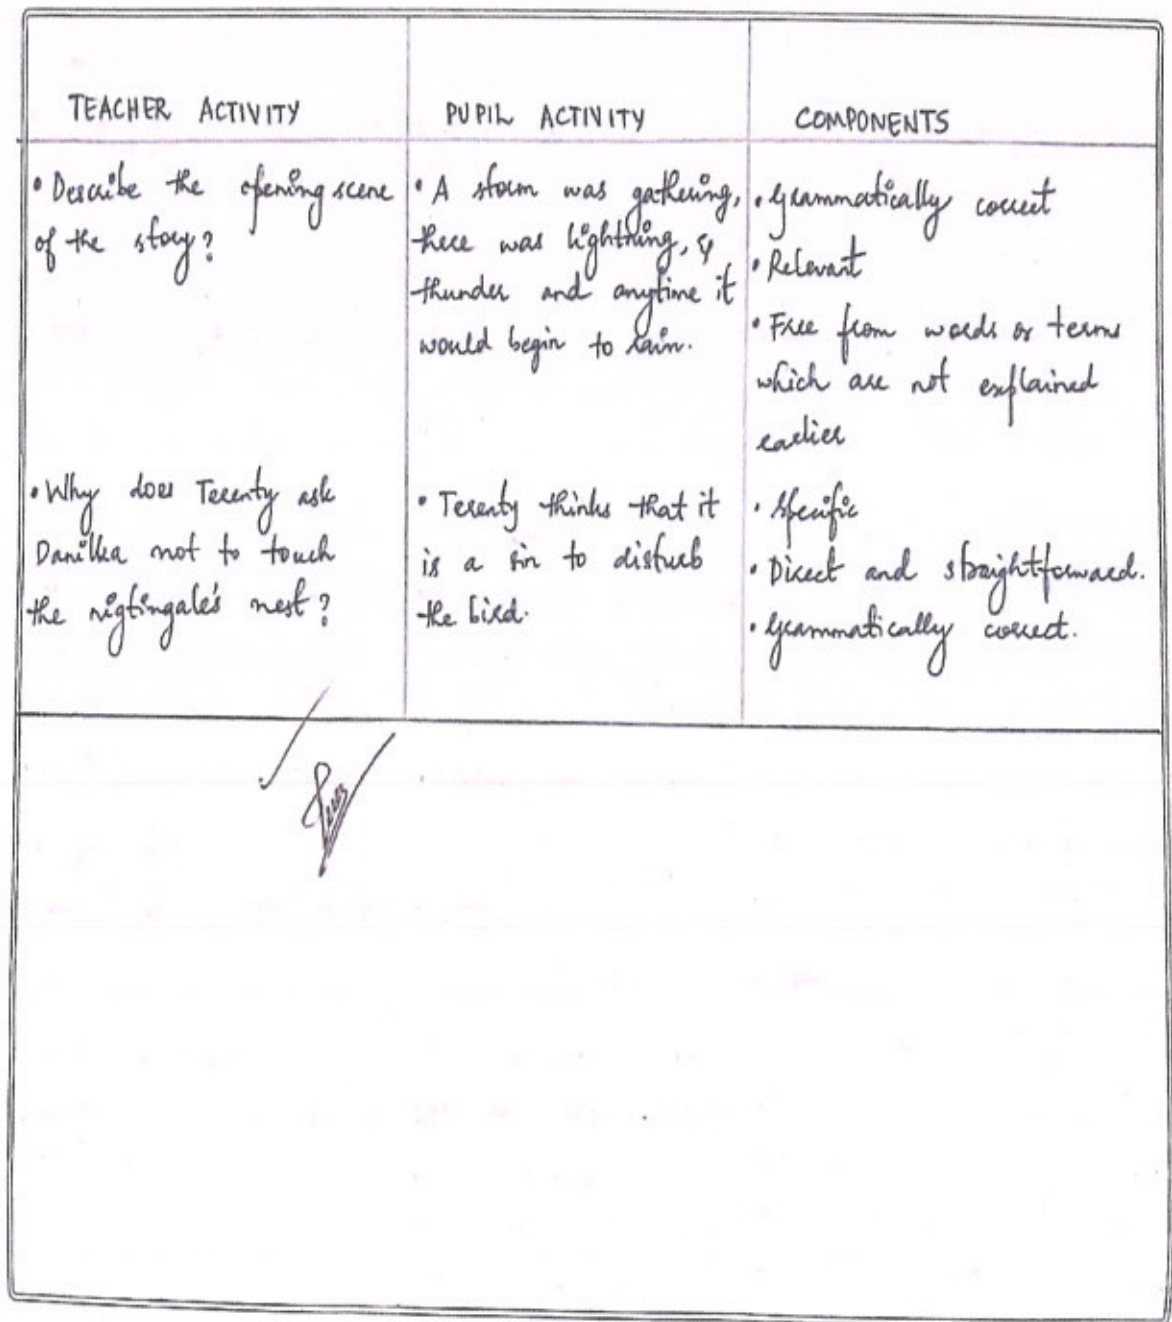 TEACHER ACTIVITY
PUPIL ACTIVITY
COMPONENTS
• Describe the opening scene
of the story?
• A storm was gathering,
there was lightning, &
thunder and anytime it
would begin to rain.
• Grammatically correct
• Relevant
• Free from words or terms
which are not explained
earlier
• Why does Terenty ask
Danilka not to touch
the nigtingale's nest?
• Terenty thinks that it
is a sin to disturb
the bird.
• Specific
• Direct and straightforward.
• Grammatically correct.